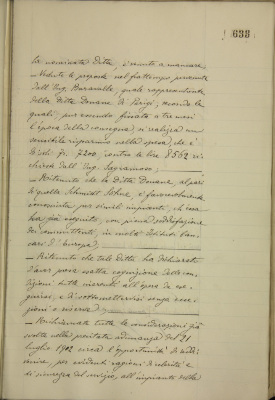 638
la nominata Ditta, è venuta a mancare
– Vedute le proposte nel frattempo pervenute
dall'Ing. Baravalle, quale rappresentante
della Ditta Douane di Parigi, secondo la
quali, pur essendo fissata a tre mesi
l'epoca della consegna, si realizza un
sensibile risparmio nella spesa, che è
di fr. 7200, contro le lire 8562 ri-
chieste dall'Ing. Sagramoso;
– Ritenuto che la Ditta Douane, al pari
di quella Schmidt Söhne, è favorevolmente
conosciuta per simili impianti, ch'essa
ha già eseguito, con piena soddisfazione
dei committenti, in molti Istituti ban-
cari d'Europa;
– Ritenuto che tale Ditta ha dichiarato
d'aver preso esatta cognizione delle con-
dizioni tutte inerenti all'opera da ese-
guirsi, e di sottomettervisi senza ecce-
zioni o riserve;
– Richiamate tutte le considerazioni già
svolte nella precitata adunanza del 21
luglio 1902 circa l'opportunità di addi-
venire, per evidenti ragioni di celerità e
di sicurezza del servizio, all'impianto della